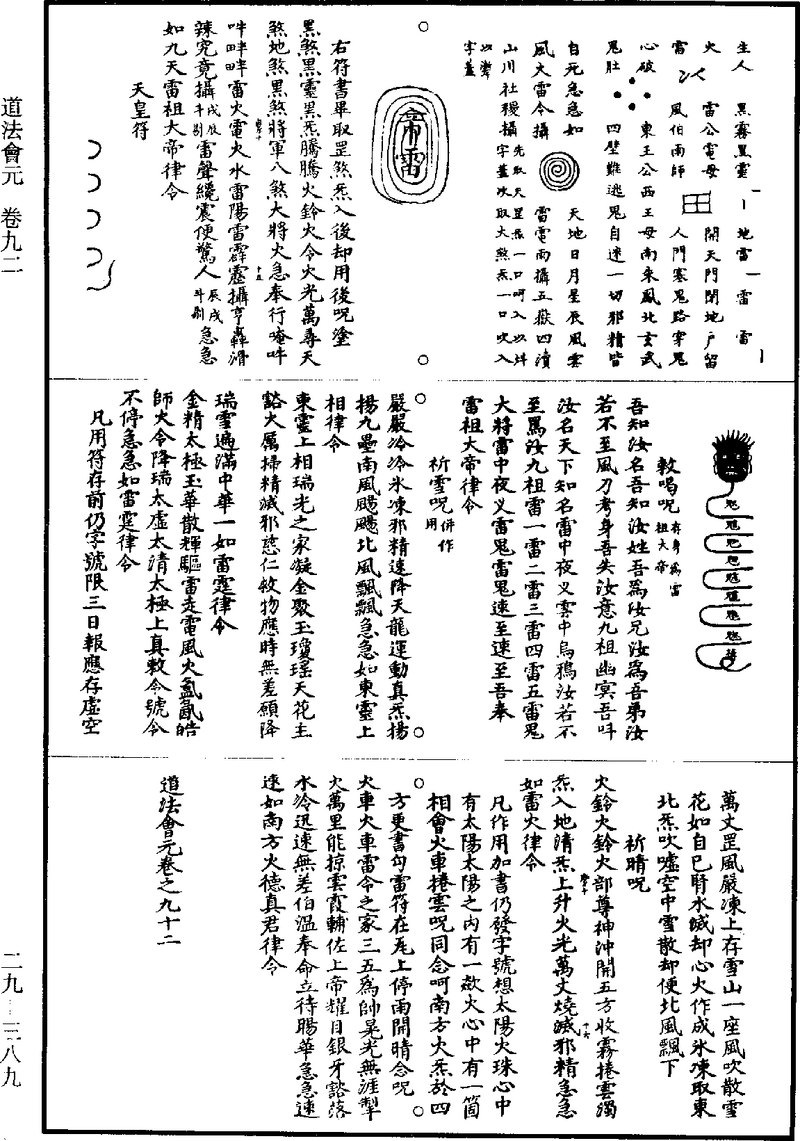 道法會元 卷九二
二九—三八九
主人 黑霧黑靈 地雷 雷 雷
火 雷公電母 開天門閉地戶留
雷 風伯雨師 人門塞鬼路穿鬼
心破 東王公西王母南朱鳳北玄武
鬼肚 四壁難逃鬼自迷一切邪精皆
自死急急如 天地日月星辰風雲
風火雷令攝 雷電雨攝五嶽四瀆
山川社稷攝先取天罡炁一口呵入以
字蓋次取大煞炁一口吹入
字蓋
帝雷
右符書畢取罡煞炁入後却用後呪塗
黑煞黑靈黑炁騰騰火鈴火令火光萬尋天
煞地煞黑煞將軍八煞大將火急奉行唵吽
吽𠷺𠷺雷火電火水雷陽雷霹靂攝亨轟滑
辣究竟攝雷聲纔震便驚人急急
如九天雷祖大帝律令
天皇符
敕唱呪存身爲雷祖大帝
吾知汝名吾知汝姓吾爲汝兄汝爲吾弟汝
若不至風刀考身吾失汝意九祖幽冥吾叫
汝名天下知名雷中夜义雲中烏鴉汝若不
至罵汝九祖雷一雷二雷三雷四雷五雷鬼
大將雷中夜义雷鬼雷鬼速至速至吾奉
雷祖大帝律令
祈雪呪併作用
嚴嚴冷冷氷凍邪精速降天龍運動真炁揚
揚九壘南風颺颺北風飄飄急急如東靈上
相律令
東靈上相瑞光之家凝金聚玉瓊瑤天花主
豁火厲掃精滅邪慈仁救物應時無差願降
瑞雪遍滿中華一如雷霆律令
金精太極玉華散輝驅雷走電風火皓
師火令降瑞太虛太清太極上真敕令號令
不停急急如雷霆律令
凡用符存前仍字號限三日報應存虛空
萬丈罡風嚴凍上存雪山一座風吹散雪
花如自己腎水滅却心火作成氷凍取東
北炁吹噓空中雪散却便北風飄下
祈晴呪
火鈴火鈴火部尊神沖開五方收霧捲雲濁
炁入地清炁上升火光萬丈燒滅邪精急急
如雷火律令
凡作用加書仍發字號想太陽火珠心中
有太陽太陽之內有一歘火心中有一箇
相會火車捲雲呪同念呵南方火炁於四
方更書勾雷符在瓦上停雨開晴念呪
火車火車雷令之家三五爲帥晃光無涯掣
火萬里能掠雲霞輔佐上帝耀目銀牙豁落
水冷迅速無差伯溫奉命立待賜華急急速
速如南方火德真君律令
道法會元卷之九十二